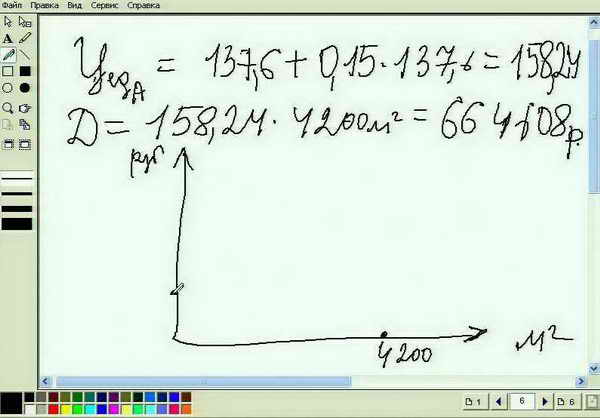 Файл Правка Вид Сервис Справка
A
Ц_ед_A = 137,6 + 0,15 · 137,6 = 158,24
D = 158,24 · 4200м² = 664608р.
руб
4200
м²
1 6 6